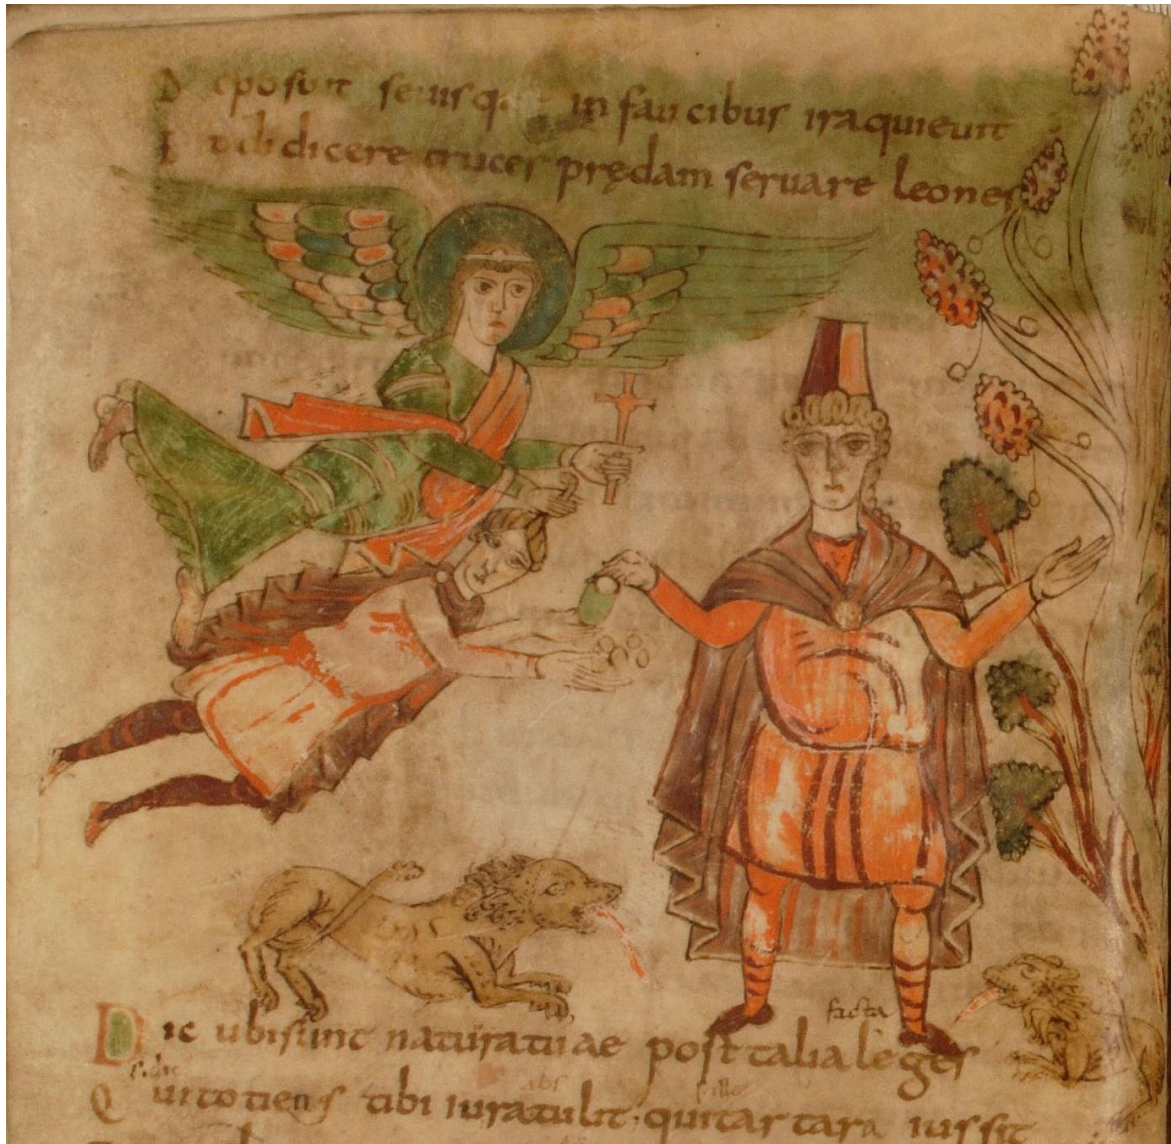 Deposuit seuisq in faucibus iraquieuit
Et didicere truces prędam seruare leones
facta
Dic ubi sunt natura tuae post talia leges
Qui totiens tibi iura tulit; qui tartara iussit